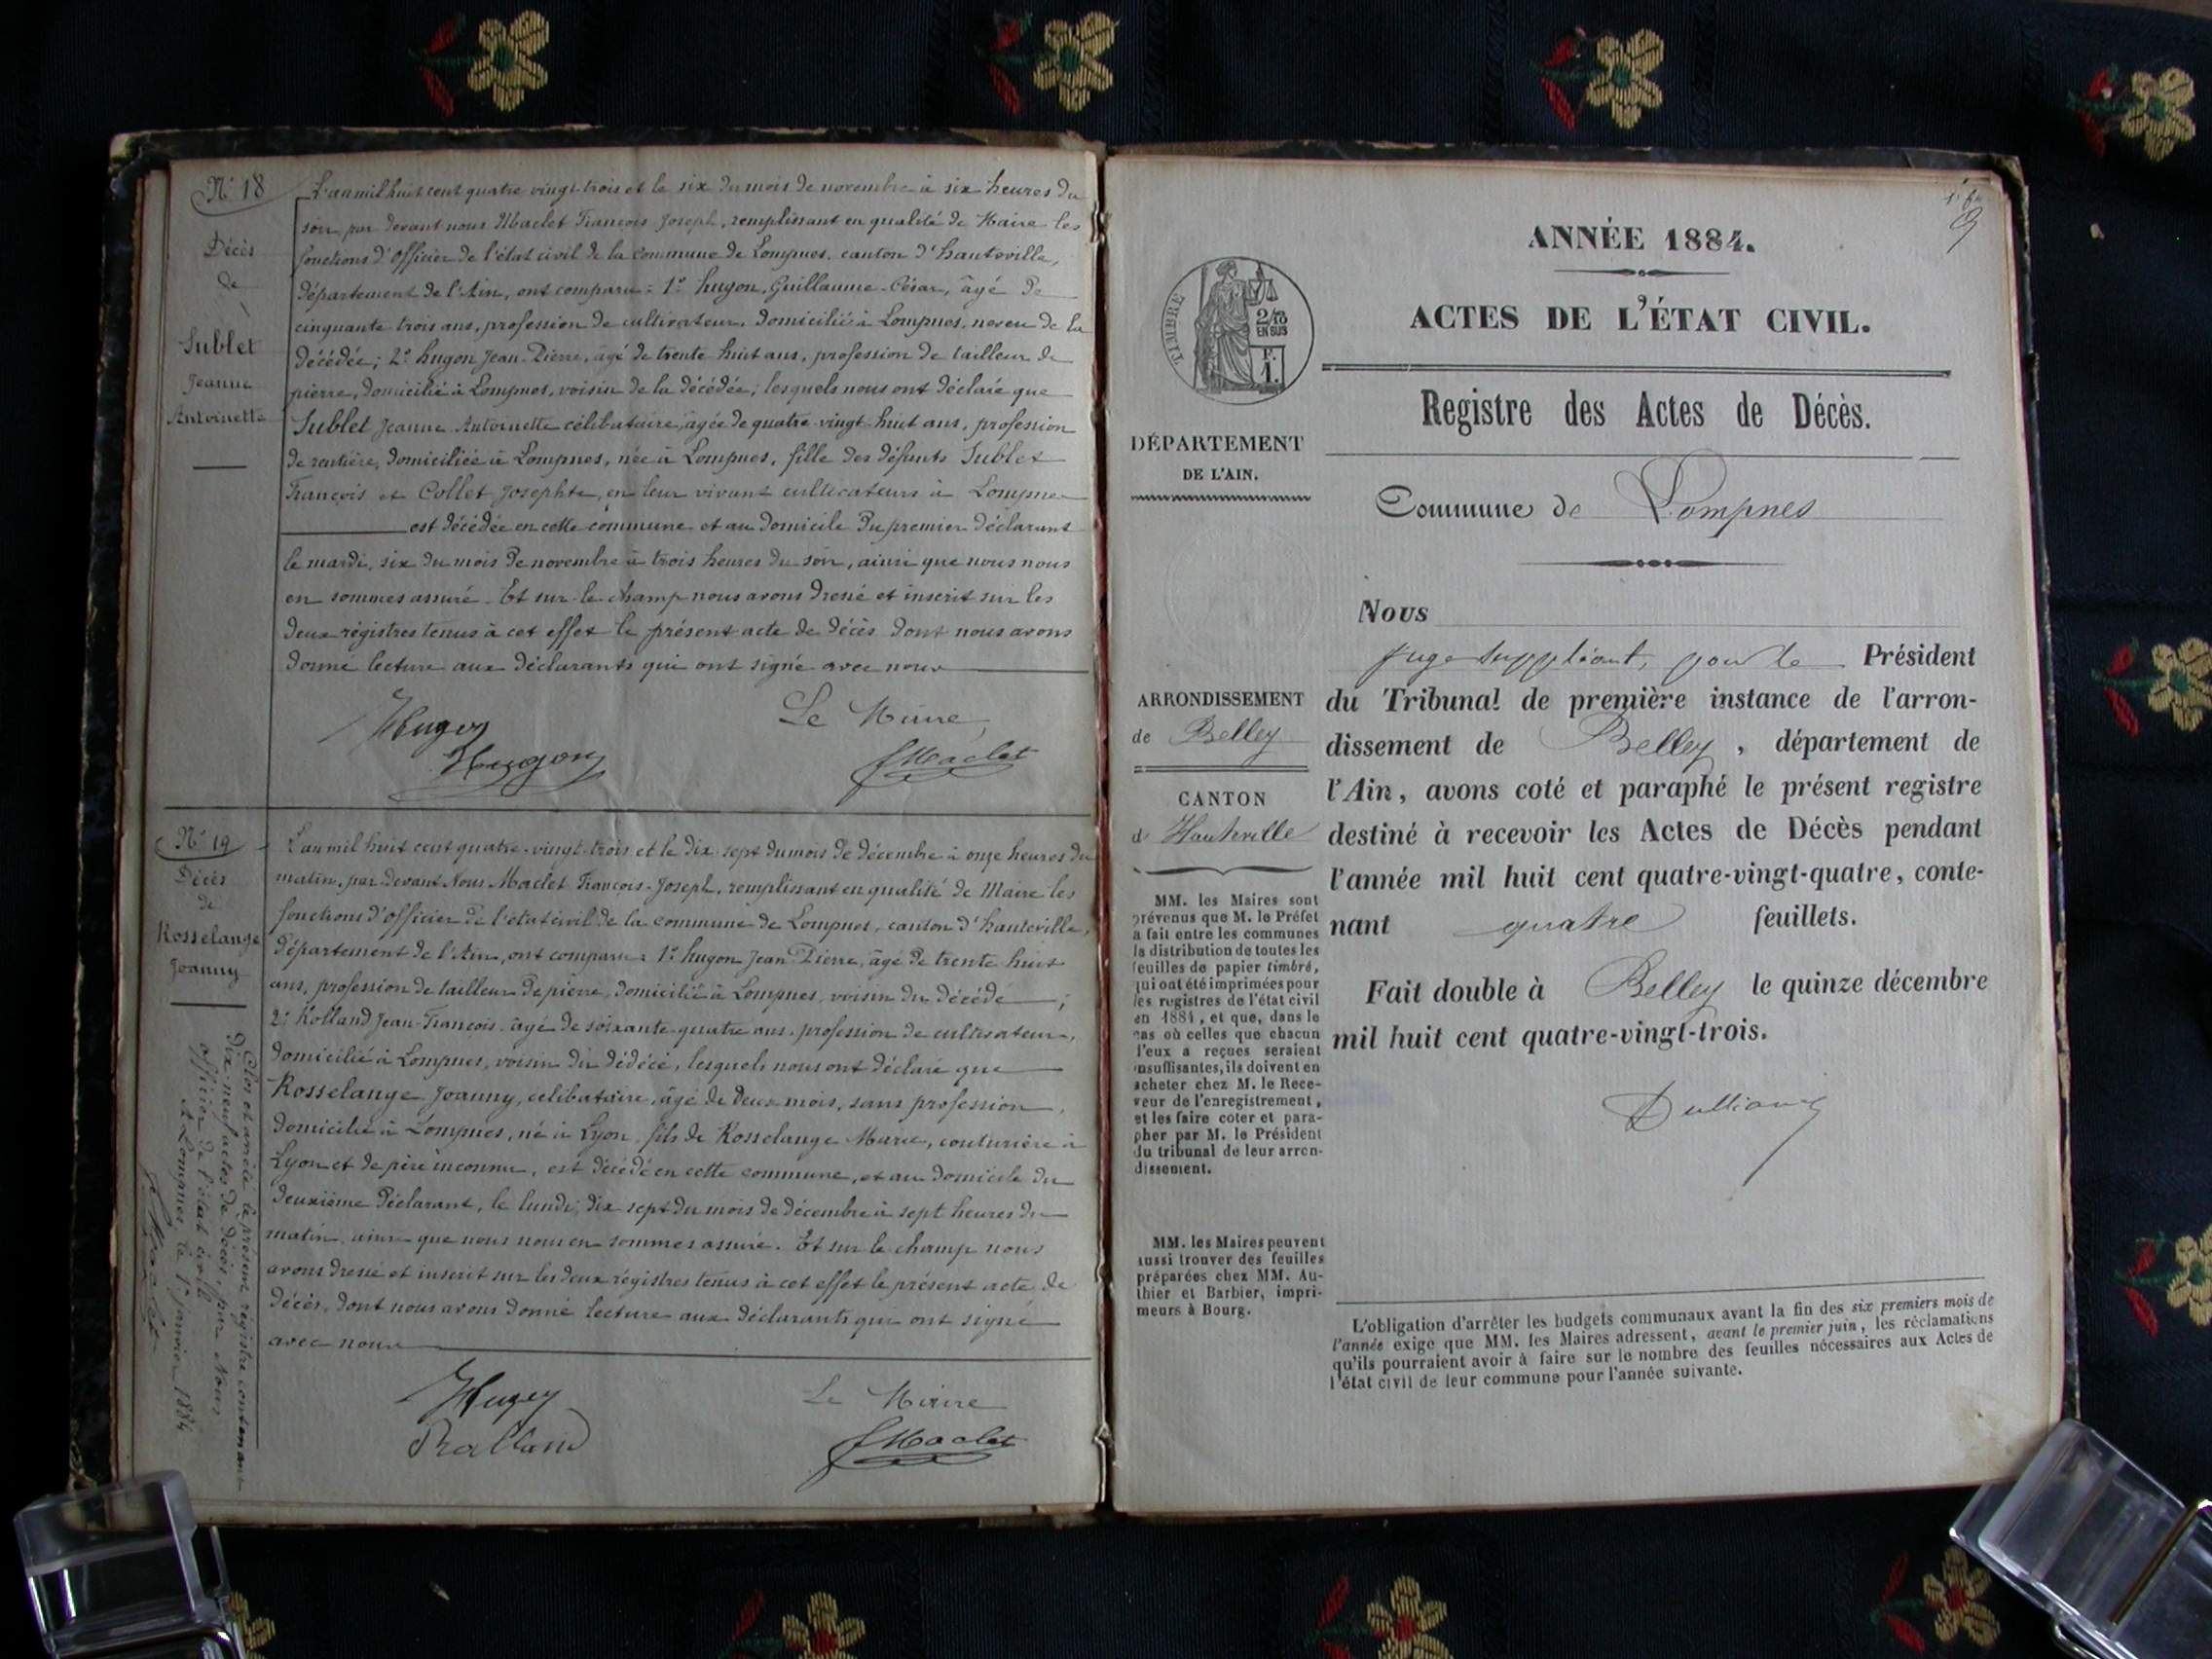 N° 18
Décès
de
Sublet
Jeanne
Antoinette
L'an mil huit cent quatre vingt trois et le six du mois de novembre à six heures du
soir, par devant nous Maclet François Joseph, remplissant en qualité de Maire les
fonctions d'officier de l'état civil de la commune de Lompnes, canton d'Hauteville,
département de l'Ain, ont comparu : 1° hugon, Guillaume-César, âgé de
cinquante trois ans, profession de cultivateur, domicilié à Lompnes, neveu de la
décédée ; 2° hugon Jean-Pierre, âgé de trente huit ans, profession de tailleur de
pierre, domicilié à Lompnes, voisin de la décédée ; lesquels nous ont déclaré que
Sublet Jeanne Antoinette célibataire, âgée de quatre-vingt-huit ans, profession
de rentière, domiciliée à Lompnes, née à Lompnes, fille des défunts Sublet
François et Collet Josephte, en leur vivant cultivateurs à Lompnes
est décédée en cette commune et au domicile du premier déclarant
le mardi, six du mois de novembre à trois heures du soir, ainsi que nous nous
en sommes assuré. Et sur-le-champ nous avons dressé et inscrit sur les
deux régistres tenus à cet effet le présent acte de décès dont nous avons
donné lecture aux déclarants qui ont signé avec nous
Hugon
Le Maire,
Hugon
fMaclet
N° 19
Décès
de
Rosselange
Joanny
L'an mil huit cent quatre-vingt-trois et le dix-sept du mois de décembre à onze heures du
matin, par devant Nous Maclet François-Joseph, remplissant en qualité de Maire les
fonctions d'officier de l'état civil de la commune de Lompnes, canton d'hauteville,
département de l'Ain, ont comparu : 1° hugon Jean Pierre, âgé de trente huit
ans, profession de tailleur de pierre, domicilié à Lompnes, voisin du décédé ;
2° Rolland Jean-François, âgé de soixante-quatre ans, profession de cultivateur,
domicilié à Lompnes, voisin du dédécé, lesquels nous ont déclaré que
Rosselange Joanny, célibataire, âgé de deux mois, sans profession,
domicilié à Lompnes, né à Lyon, fils de Rosselange Marie, couturière à
Lyon et de père inconnu, est décédé en cette commune, et au domicile du
deuxième déclarant, le lundi, dix-sept du mois de décembre à sept heures du
matin, ainsi que nous nous en sommes assuré. Et sur-le-champ nous
avons dressé et inscrit sur les deux régistres tenus à cet effet le présent acte de
décès, dont nous avons donné lecture aux déclarants qui ont signé
avec nous
Hugon
Le Maire
Rolland
fMaclet
Clos et arrêté le présent régistre contenant
dix neuf actes de décès, par Nous
officier de l'état civil
A Lompnes le 1er janvier 1884
fMaclet
9
ANNÉE 1884.
ACTES DE L'ÉTAT CIVIL.
TIMBRE
2/10
EN SUS
F.
1.
Registre des Actes de Décès.
DÉPARTEMENT
DE L'AIN.
Commune de Lompnes
Nous
juge suppléant, pour le Président
du Tribunal de première instance de l'arron-
dissement de Belley, département de
l'Ain, avons coté et paraphé le présent registre
destiné à recevoir les Actes de Décès pendant
l'année mil huit cent quatre-vingt-quatre, conte-
nant quatre feuillets.
Fait double à Belley le quinze décembre
mil huit cent quatre-vingt-trois.
ARRONDISSEMENT
de Belley
CANTON
d' Hauteville
MM. les Maires sont
prévenus que M. le Préfet
a fait entre les communes
la distribution de toutes les
feuilles de papier timbré,
qui ont été imprimées pour
les registres de l'état civil
en 1884, et que, dans le
cas où celles que chacun
d'eux a reçues seraient
insuffisantes, ils doivent en
acheter chez M. le Rece-
veur de l'enregistrement,
et les faire coter et para-
pher par M. le Président
du tribunal de leur arron-
dissement.
MM. les Maires peuvent
aussi trouver des feuilles
préparées chez MM. Au-
thier et Barbier, impri-
meurs à Bourg.
L'obligation d'arrêter les budgets communaux avant la fin des six premiers mois de
l'année exige que MM. les Maires adressent, avant le premier juin, les réclamations
qu'ils pourraient avoir à faire sur le nombre des feuilles nécessaires aux Actes de
l'état civil de leur commune pour l'année suivante.